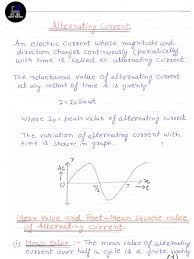 Alternating Current
An electric current whose magnitude and
direction changes continuously (periodically)
with time is called an alternating current.
The instantaneous value of alternating current
at any instant of time t is given by
I = I₀ sin ωt
where I₀ = peak value of alternating current
The variation of alternating current with
time is shown in graph.
Mean Value and Root-Mean square value
of Alternating Current.
(i) Mean Value :- The mean value of alternating
current over half a cycle is a finite quantity